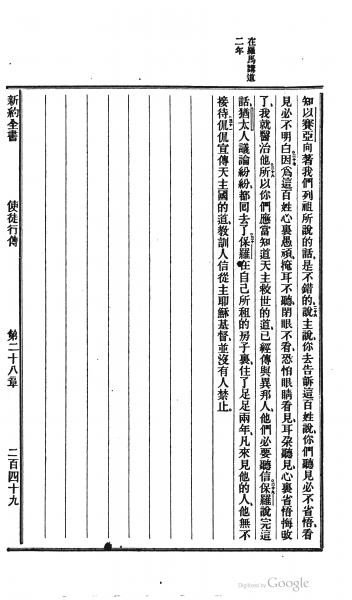 在羅馬講道
二年
知以賽亞向著我們列祖所說的話、是不錯的、說、主說、你去告訴這百姓說、你們聽見必不省悟、看
見必不明白、因爲這百姓心裏愚頑、掩耳不聽、閉眼不看、恐怕眼睛看見、耳朶聽見、心裏省悟、悔改
了、我就醫治他、所以你們應當知道天主救世的道、已經傳與異邦人、他們必要聽信、保羅說完這
話、猶太人議論紛紛、都回去了、保羅在自己所租的房子裏、住了足足兩年、凡來見他的人、他無不
接待、侃侃宣傳天主國的道、敎訓人信從主耶穌基督、並沒有人禁止。
新約全書 使徒行傳 第二十八章 二百四十九
Digitized by Google